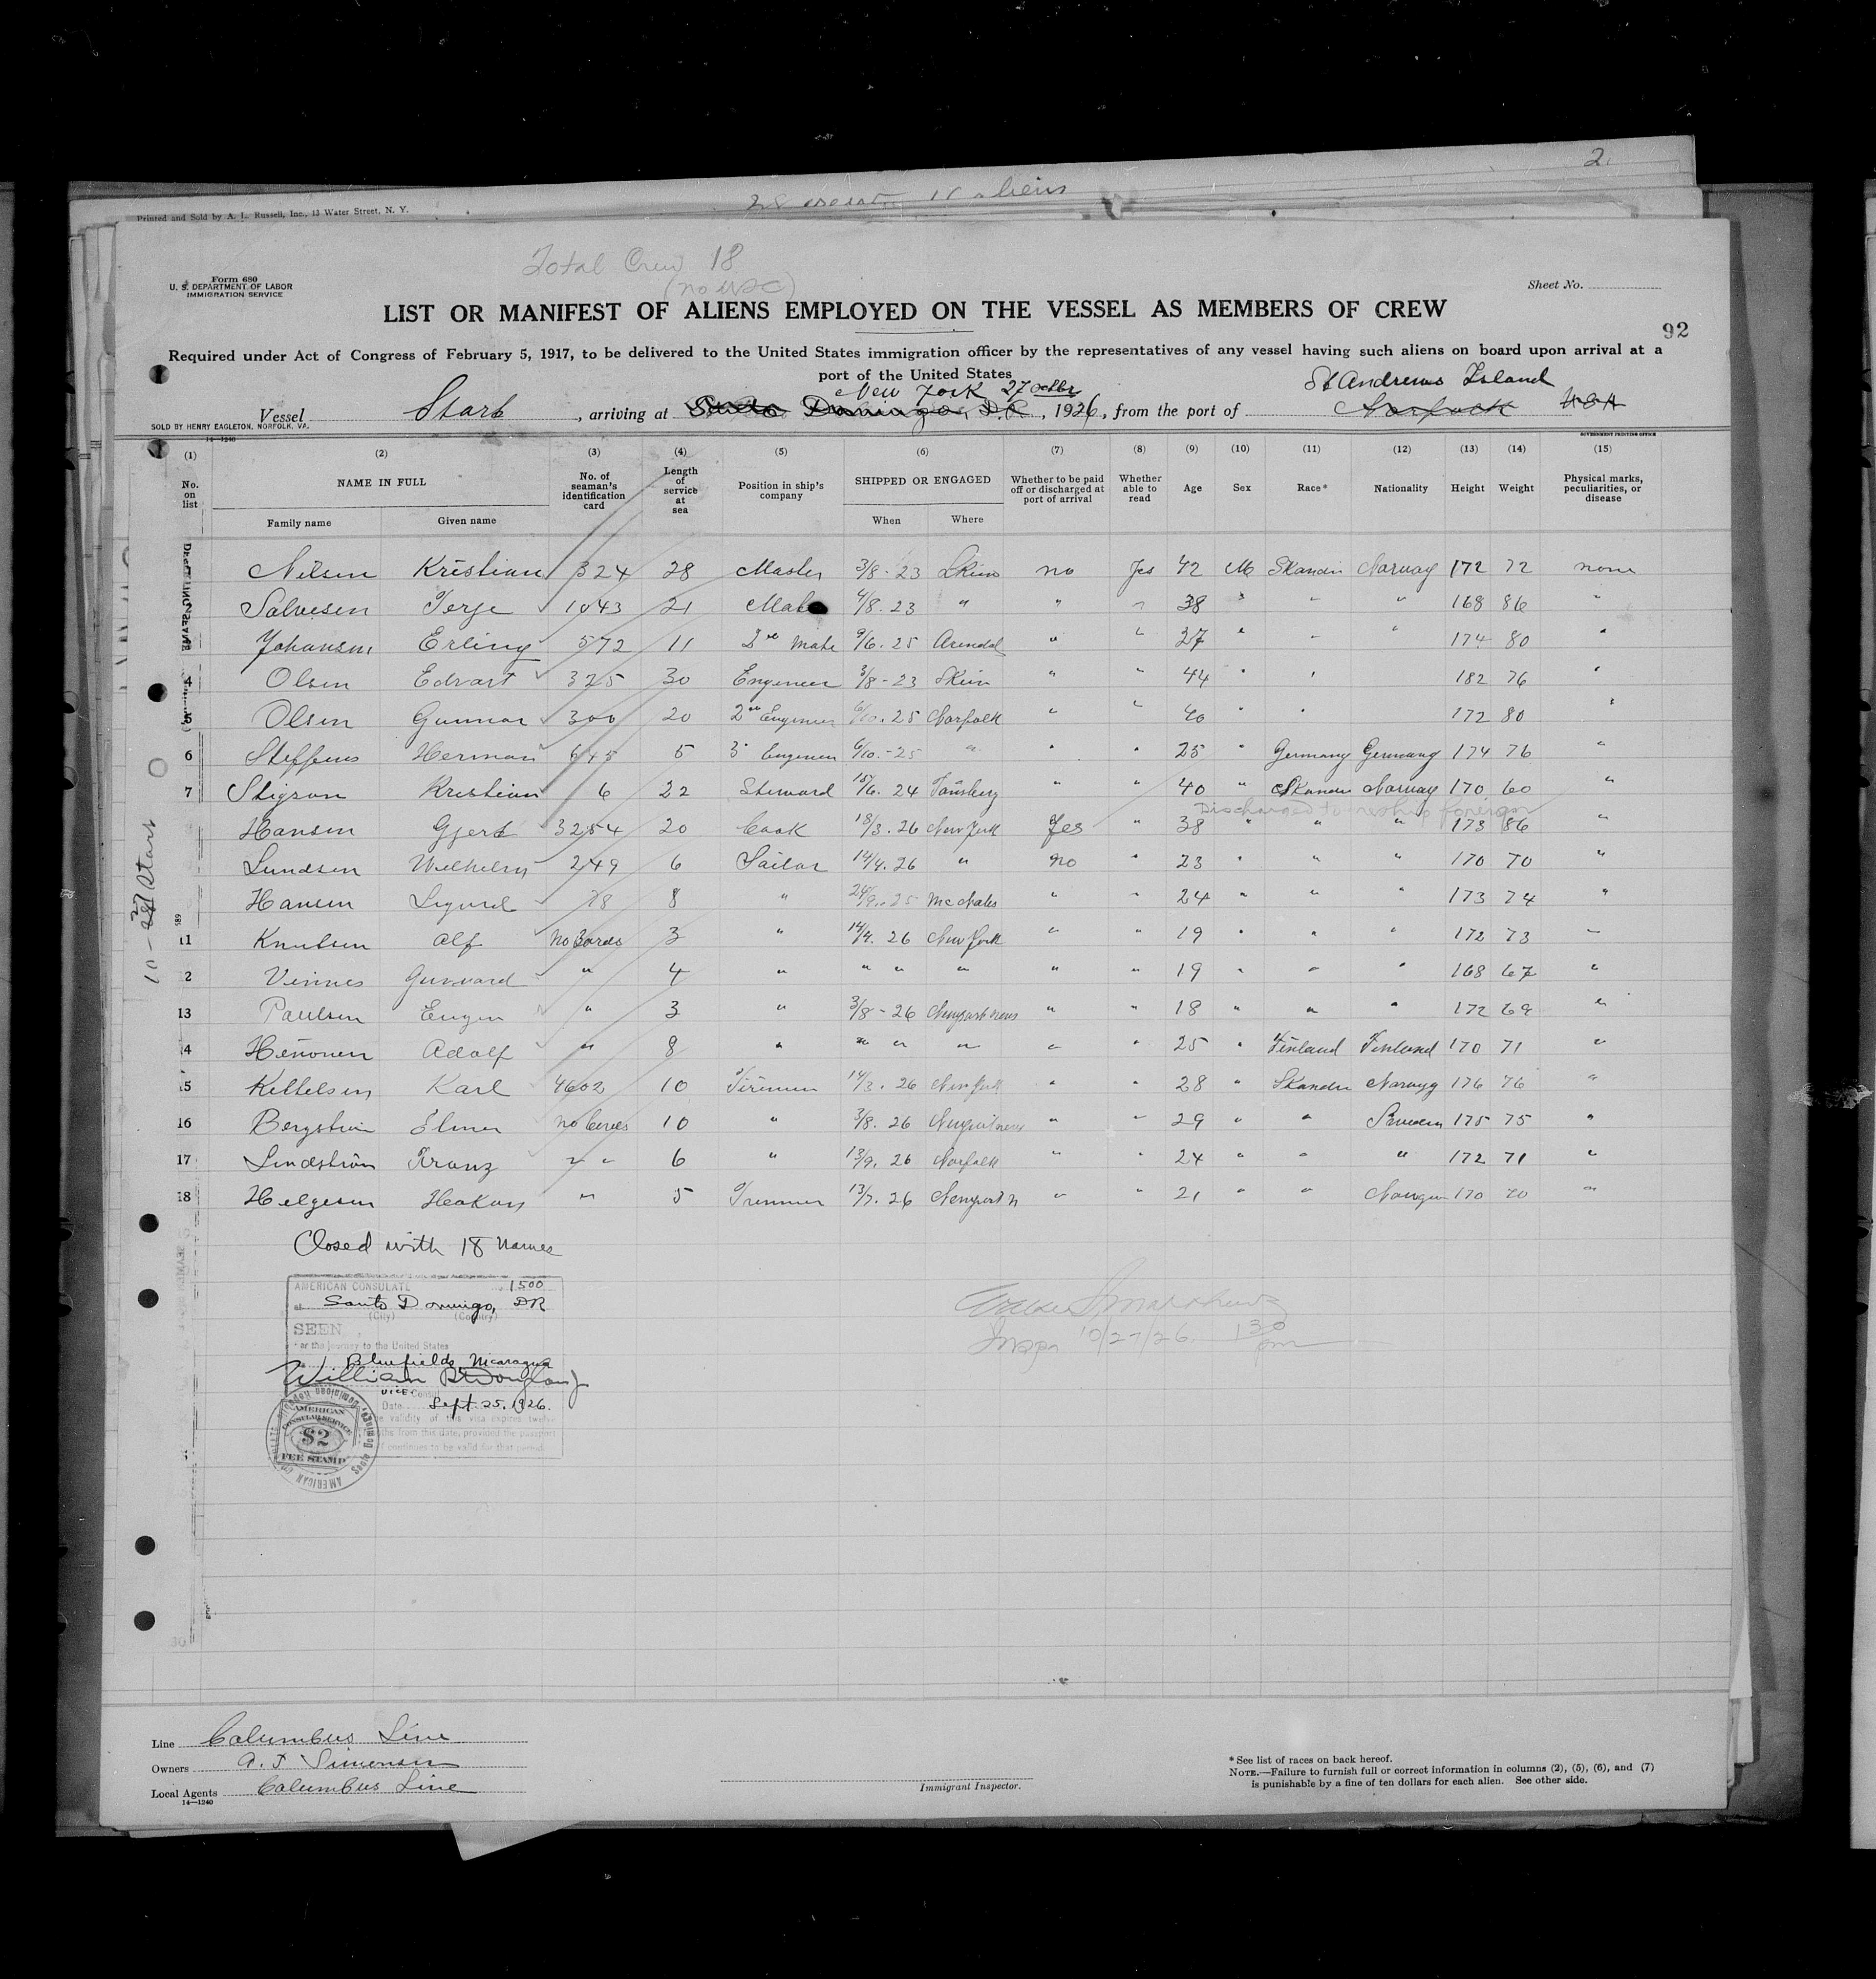 2
aliens
Printed and Sold by A. L. Russell, Inc., 13 Water Street, N. Y.
Total Crew 18
(no USC)
Form 680
U. S. DEPARTMENT OF LABOR
IMMIGRATION SERVICE
Sheet No.
LIST OR MANIFEST OF ALIENS EMPLOYED ON THE VESSEL AS MEMBERS OF CREW
92
Required under Act of Congress of February 5, 1917, to be delivered to the United States immigration officer by the representatives of any vessel having such aliens on board upon arrival at a
port of the United States
New York 27 octbr St Andrews Island
Vessel Start, arriving at Santo Domingo, D.R., 1926, from the port of Norfolk USA
SOLD BY HENRY EAGLETON, NORFOLK, VA.
14—1240
GOVERNMENT PRINTING OFFICE
(1) (2) (3) (4) (5) (6) (7) (8) (9) (10) (11) (12) (13) (14) (15)
No. on list NAME IN FULL No. of seaman's identification card Length of service at sea Position in ship's company SHIPPED OR ENGAGED Whether to be paid off or discharged at port of arrival Whether able to read Age Sex Race* Nationality Height Weight Physical marks, peculiarities, or disease
Family name Given name When Where
Nilsen Kristian 324 28 Master 3/8-23 Skien no Yes 42 M Skandin Norway 172 72 none
Salvesen Terje 1043 21 Mate 4/8.23 " " " 38 " " " 168 86 "
Johansen Erling 572 11 2nd Mate 9/6.25 Arendal " " 37 " " " 174 80 "
4 Olsen Edvart 325 30 Engineer 3/8-23 Skien " " 44 " " 182 76 "
5 Olsen Gunnar 300 20 2nd Engineer 6/10.25 Norfolk " " 40 " " 172 80 "
6 Steffens Herman 645 5 3 Engineer 6/10.-25 " " " 25 " Germany Germany 174 76 "
7 Stigson Kristian 6 22 Steward 15/6.24 Tönsberg " " 40 " Skandin Norway 170 60 "
Discharged to reship foreign
Hansen Gjert 3254 20 Cook 18/3.26 New York Yes " 38 " " " 173 86 "
Lundsen Wilhelm 249 6 Sailor 14/4.26 " no " 23 " " " 170 70 "
Hansen Sigurd 78 8 " 24/9.25 " " 24 " " " 173 74 "
11 Knutsen Alf no Cards 3 " 14/4.26 New York " " 19 " " " 172 73 "
2 Vinnes Gunvard " 4 " " " " " " 19 " " " 168 67 "
13 Paulsen Eugen " 3 " 3/8-26 Newport news " " 18 " " " 172 69 "
4 Heinonen Adolf " 8 " " " " " " 25 " Finland Finland 170 71 "
5 Kettelsen Karl 4602 10 Firemen 14/3.26 New York " " 28 " Skandin Norway 176 76 "
16 Bergström Elmer no Cards 10 " 3/8.26 Newport news " " 29 " " Sweden 175 75 "
17 Lindström Franz " " 6 " 13/9.26 Norfolk " " 24 " " " 172 71 "
18 Helgesen Haakon " 5 Trimmer 13/7.26 Newport N " " 21 " " Norway 170 70 "
10-27 Start
Closed with 18 Names
AMERICAN CONSULATE 1500
at Santo Domingo, DR
(City) (Country)
SEEN
For the journey to the United States
Bluefields Nicaragua
William B Douglas Jr
vice Consul
Date Sept. 25, 1926.
The validity of this visa expires twelve
months from this date, provided the passport
continues to be valid for that period.
AMERICAN
CONSULAR SERVICE
$2
FEE STAMP
Matthews
Inspr 10/27/26. 1 30 pm
30
Line Columbus Line
Owners A. F. Simonsen
Local Agents Columbus Line
14—1240
Immigrant Inspector.
* See list of races on back hereof.
NOTE.—Failure to furnish full or correct information in columns (2), (5), (6), and (7)
is punishable by a fine of ten dollars for each alien. See other side.